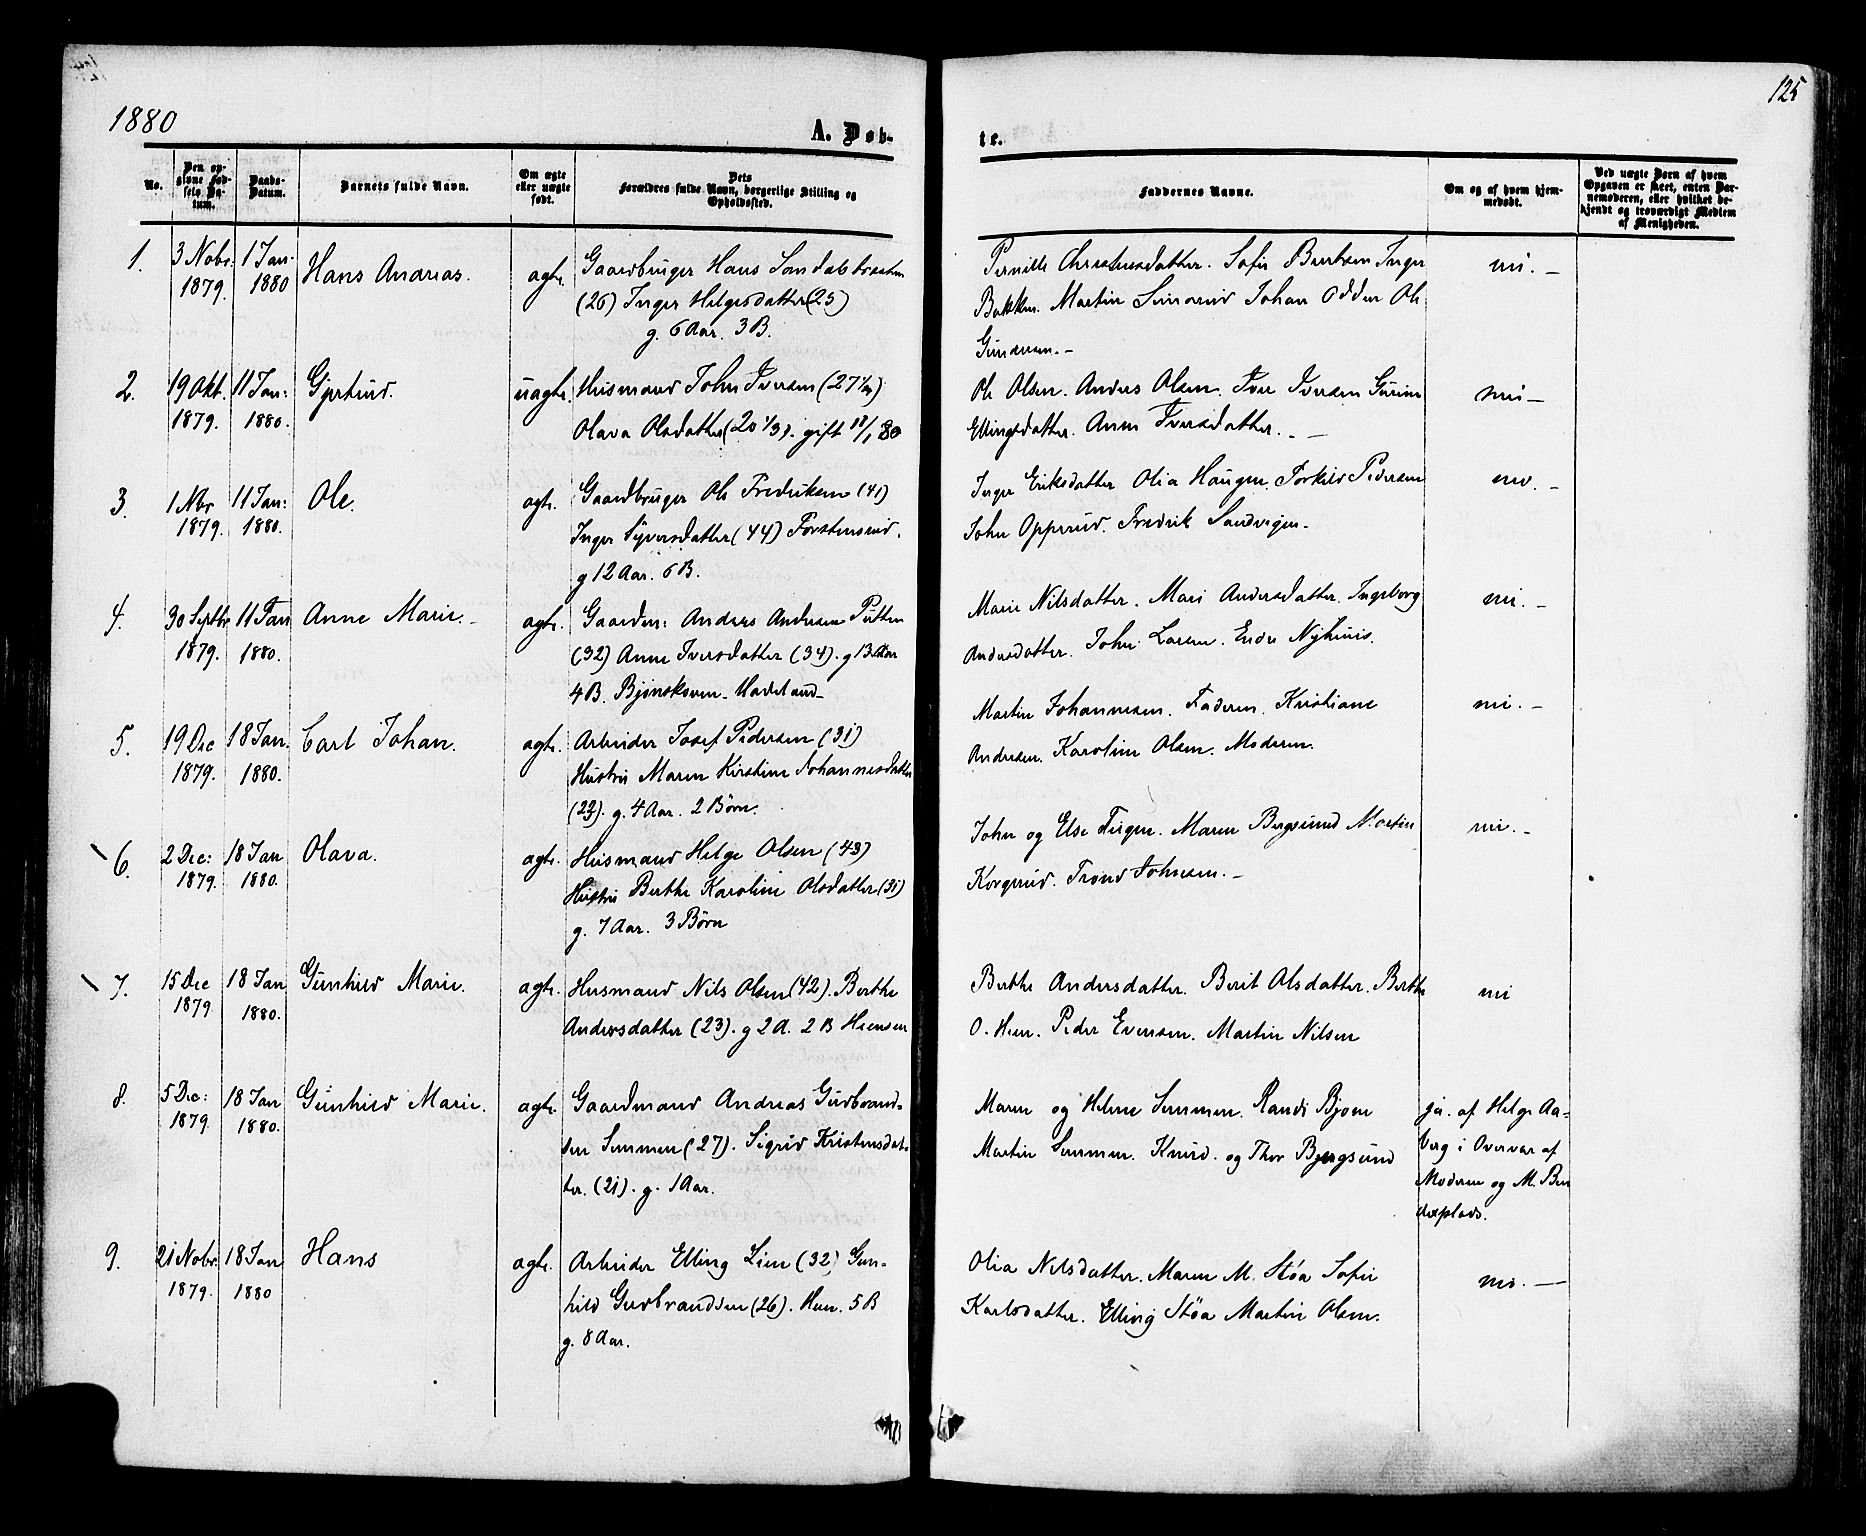 125
1880
A. Døb-
te.
No.
Den op-
givne Fød-
sels Da-
tum.
Daabs-
Datum.
Barnets fulde Navn.
Om ægte
eller uægte
født.
Dets
Forældres fulde Navn, borgerlige Stilling og
Opholdssted.
Faddernes Navne.
Om og af hvem hjem-
medøbt.
Ved uægte Børn af hvem
Opgaven er skeet, enten Bar-
nemoderen, eller hvilket be-
kjendt og troværdigt Medlem
af Menigheden.
1. 3 Nobr. 1 Jan. Hans Andreas. ægte. Gaardbruger Hans
1879. 1880 (26) Inger Helgesdatter (25)
g. 6 Aar. 3 B.
Pernille Sofie Inger ni. -
Bakken. Martin Johan Odden Ole
Gundersen. -
2. 19 Okt. 11 Jan: Gjertrud. uægte. Husmand John Iversen (27 1/4)
1879. 1880. Olava Olsdatter (20 1/3). gift 18/1 80
Ole Olsen. Anders Olsen. Iver Iversen ni -
Ellingsdatter. Anne Iversdatter. -
3. 1 Nbr 11 Jan: Ole. ægte. Gaardbruger Ole Fredriksen (41)
1879. 1880. Inger Syversdatter (44) Torstensrud.
g 12 Aar. 6 B.
Inger Eriksdatter Olia Haugen. Torkild Pedersen -
John Opperud. Fredrik Sandvigen.
4. 30 Septbr 11 Jan Anne Marie. - ægte. Gaardm: Anders Andersen Putten
1879. 1880. (32) Anne Iversdatter (34). g 13 Aar
4 B. Hadeland -
Marie Nilsdatter. Mari Andersdatter. Ingeborg ni. -
Andersdatter. John Larsen. Endre Nyhuus.
5. 19 Dec 18 Jan. Carl Johan. ægte. Arbeider Josef Pedersen (31)
1879. 1880. Hustru Maren Kirstine Johannesdatter
(23). g. 4 Aar. 2 Børn.
Martin Johannesen. Faderen. Kristiane ni. -
Andersen. Karoline Olsen. Moderen.
6. 2 Dec: 18 Jan Olava. ægte. Husmand Helge Olsen (43)
1879. 1880. Hustru Berthe Karoline Olsdatter (31)
g. 7 Aar. 3 Børn
John og Else Maren Bergsund Martin ni. -
Korgerud. Trond Johnsen. -
7. 15 Dec 18 Jan Gunhild Marie. ægte. Husmand Nils Olsen (42). Berthe
1879 1880. Andersdatter (23). g 2 A. 2 B
Berthe Andersdatter. Berit Olsdatter. Berthe ni
O. Hen. Peder Evensen. Martin Nilsen
8. 5 Dec: 18 Jan Gunhild Marie. ægte. Gaardmand Andreas Gudbrand-
1879. 1880. sen Semmen (27). Sigrid Kristensdat-
ter. (21). g. 1 Aar.
Maren og Helene Semmen. Randi Bjone ja. af Helge Aa-
Martin Semmen. Knud. og Thor Bjergsund berg i Overvær af
Moderen og M.
9. 21 Nobr. 18 Jan Hans ægte. Arbeider Elling Lien (32) Gun-
1879. 1880 hild Gudbrandsen (26). Hen. 5 B
g. 8 Aar.
Olia Nilsdatter. Maren M. Støa Sofie -
Karlsdatter. Elling Støa Martin Olsen.